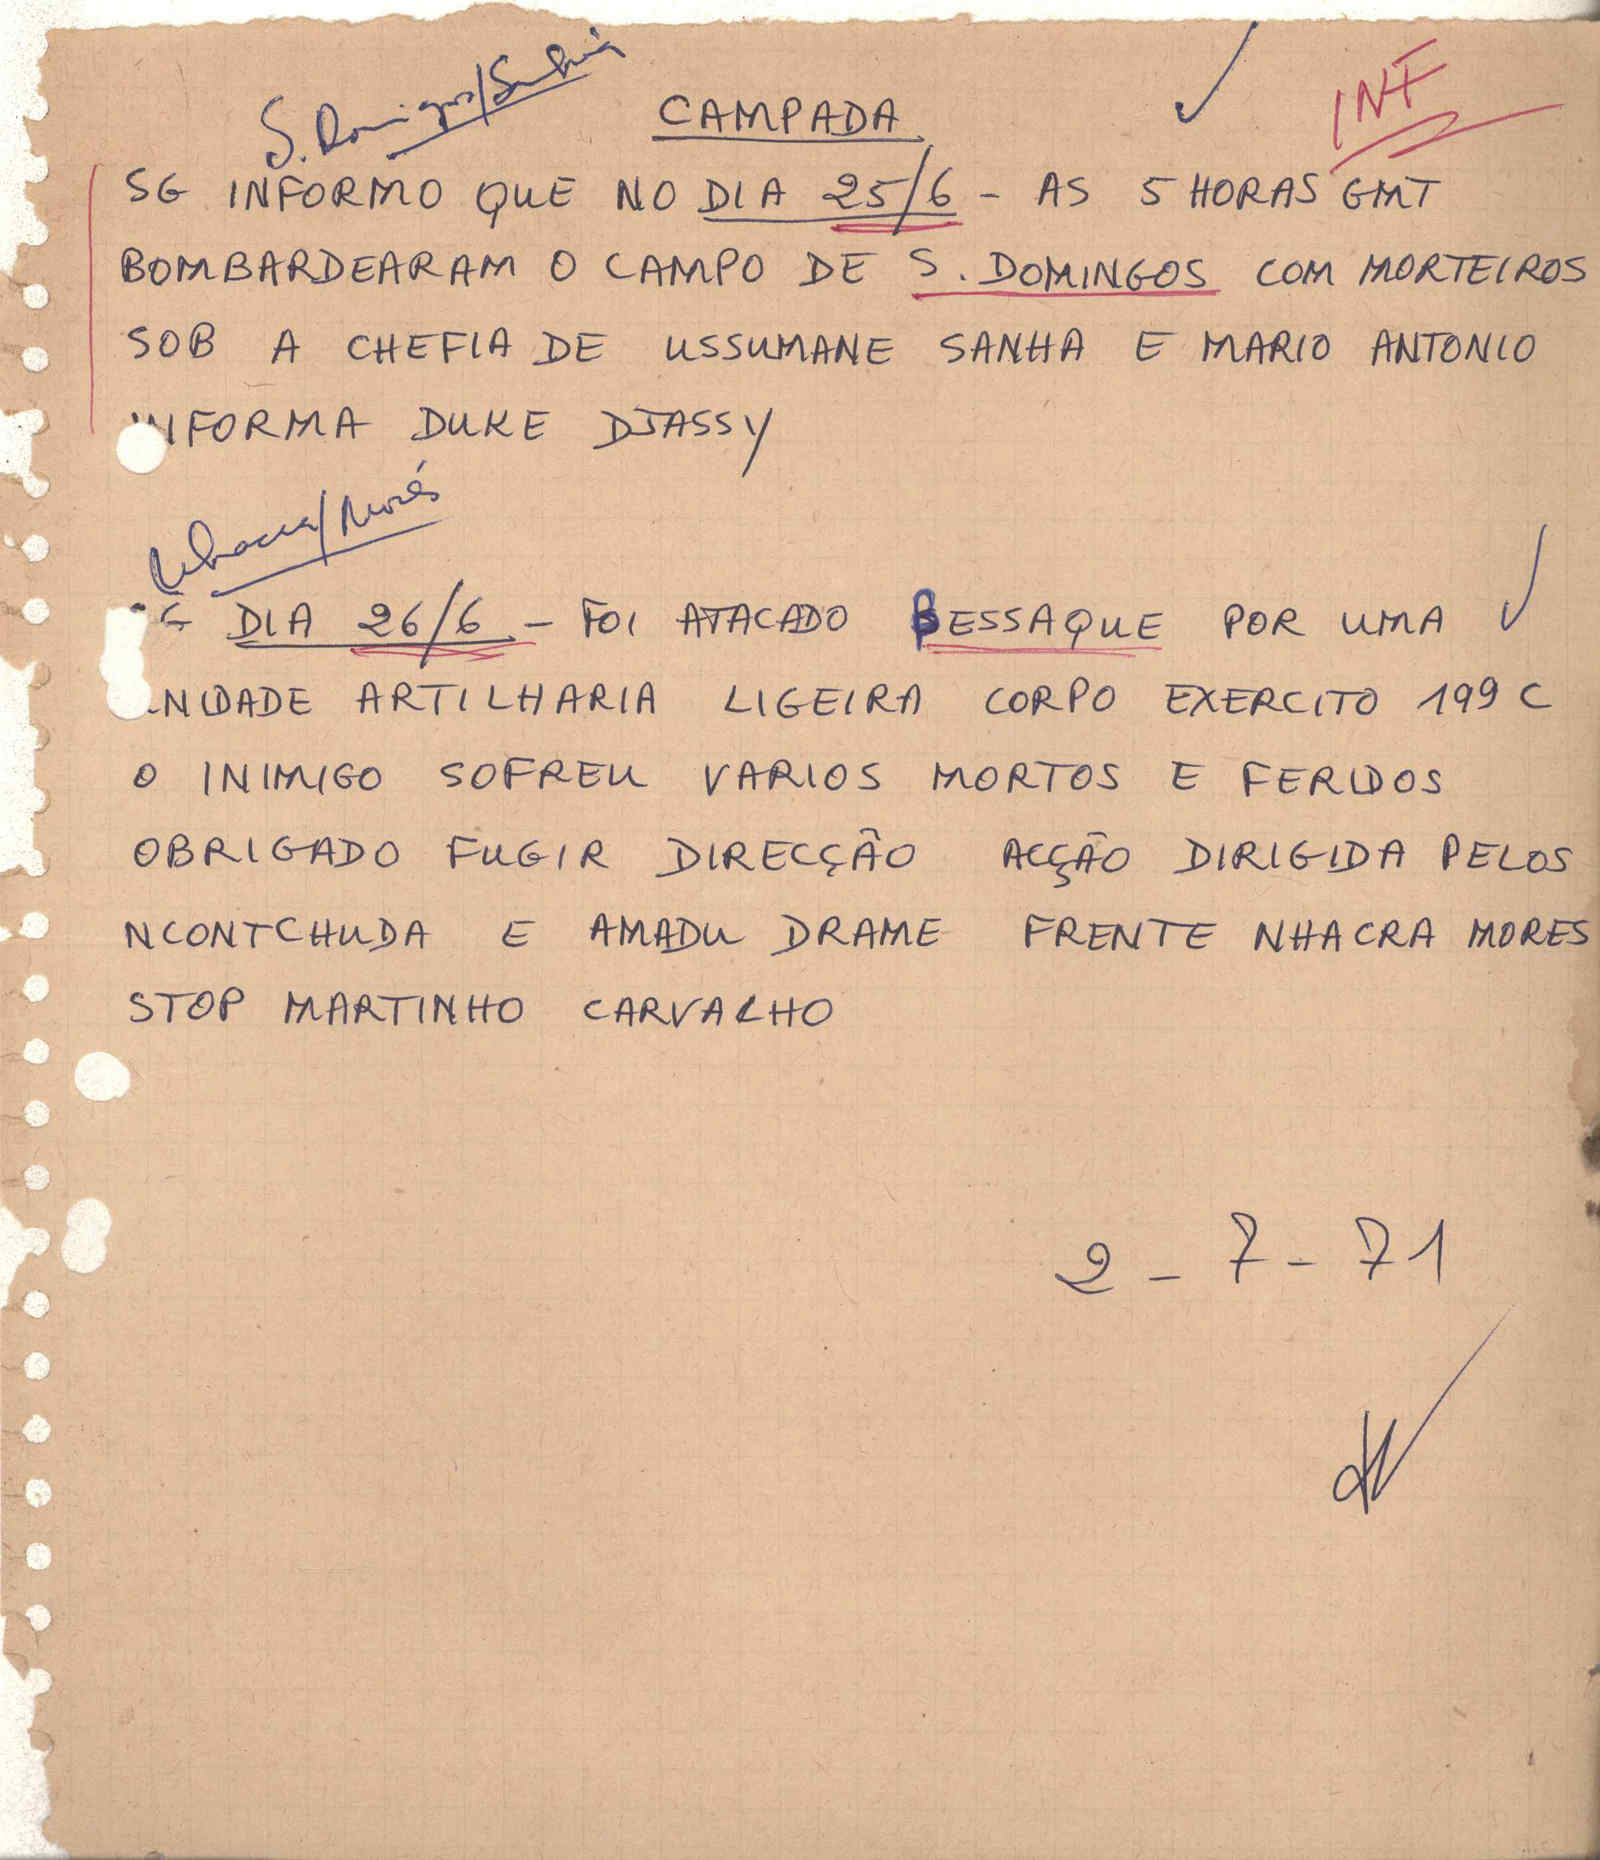 S. Domingos/Sambuiá
CAMPADA
INF
SG INFORMO QUE NO DIA 25/6 - AS 5 HORAS GMT
BOMBARDEARAM O CAMPO DE S. DOMINGOS COM MORTEIROS
SOB A CHEFIA DE USSUMANE SANHA E MARIO ANTONIO
INFORMA DUKE DJASSY
Nhacra/Morés
SG DIA 26/6 - FOI ATACADO BESSAQUE POR UMA
UNIDADE ARTILHARIA LIGEIRA CORPO EXERCITO 199 C
O INIMIGO SOFREU VARIOS MORTOS E FERIDOS
OBRIGADO FUGIR DIRECÇÃO ACÇÃO DIRIGIDA PELOS
NCONTCHUDA E AMADU DRAME FRENTE NHACRA MORES
STOP MARTINHO CARVALHO
2 - 7 - 71